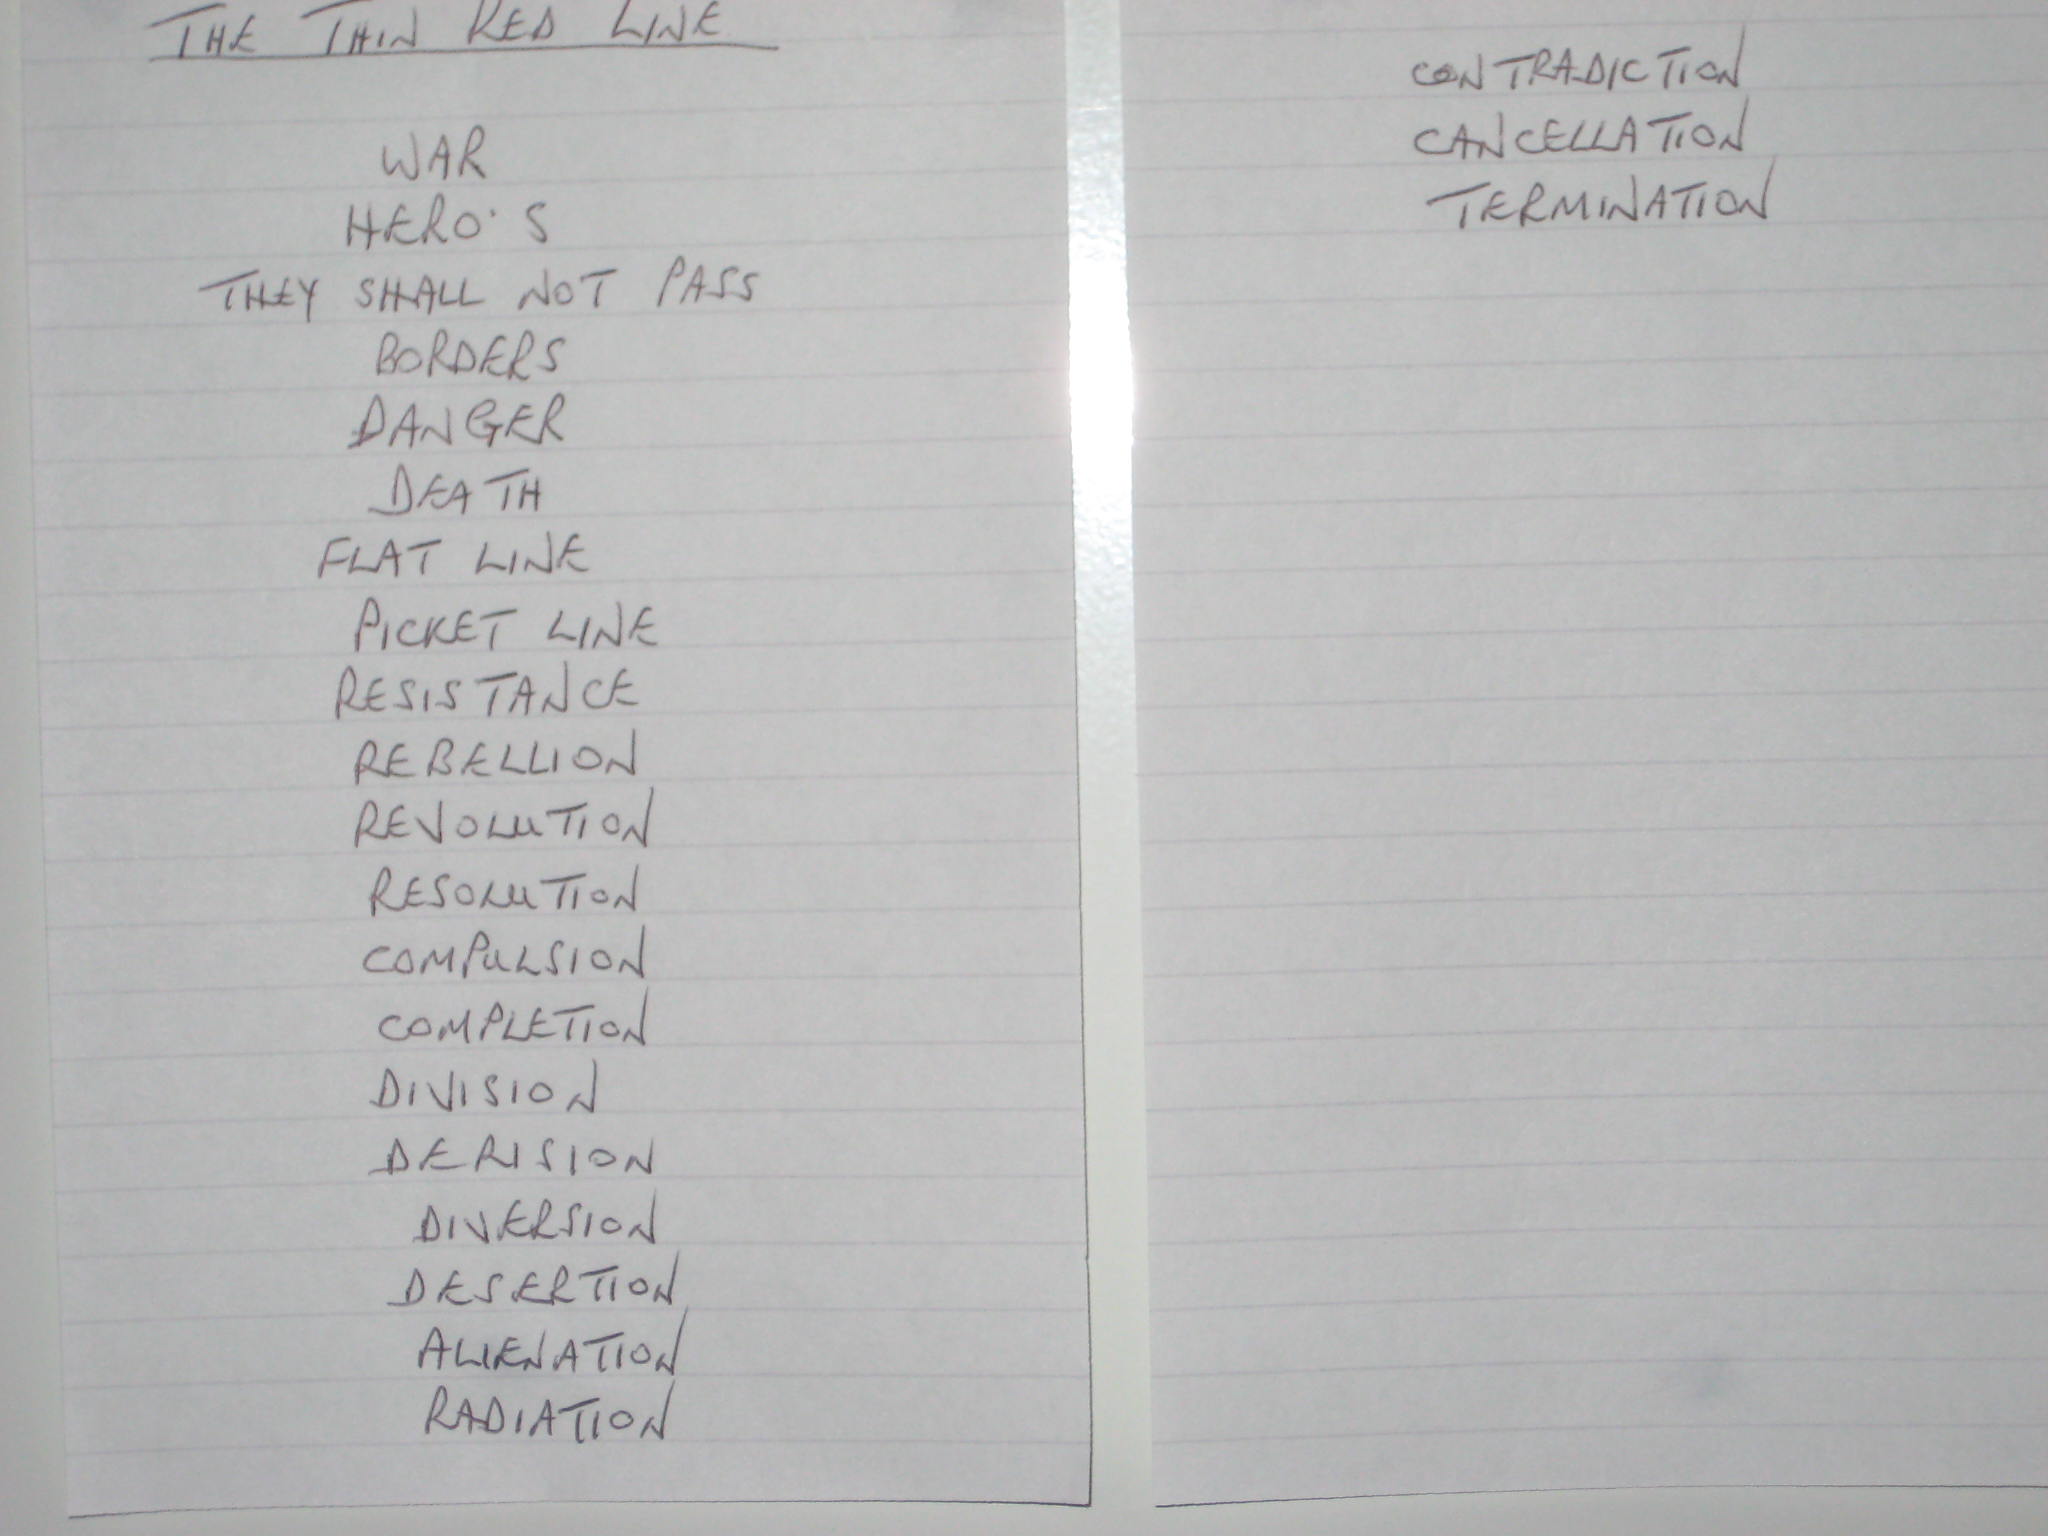 THE THIN RED LINE
WAR
HERO'S
THEY SHALL NOT PASS
BORDERS
DANGER
DEATH
FLAT LINE
PICKET LINE
RESISTANCE
REBELLION
REVOLUTION
RESOLUTION
COMPULSION
COMPLETION
DIVISION
DERISION
DIVERSION
DESERTION
ALIENATION
RADIATION
CONTRADICTION
CANCELLATION
TERMINATION